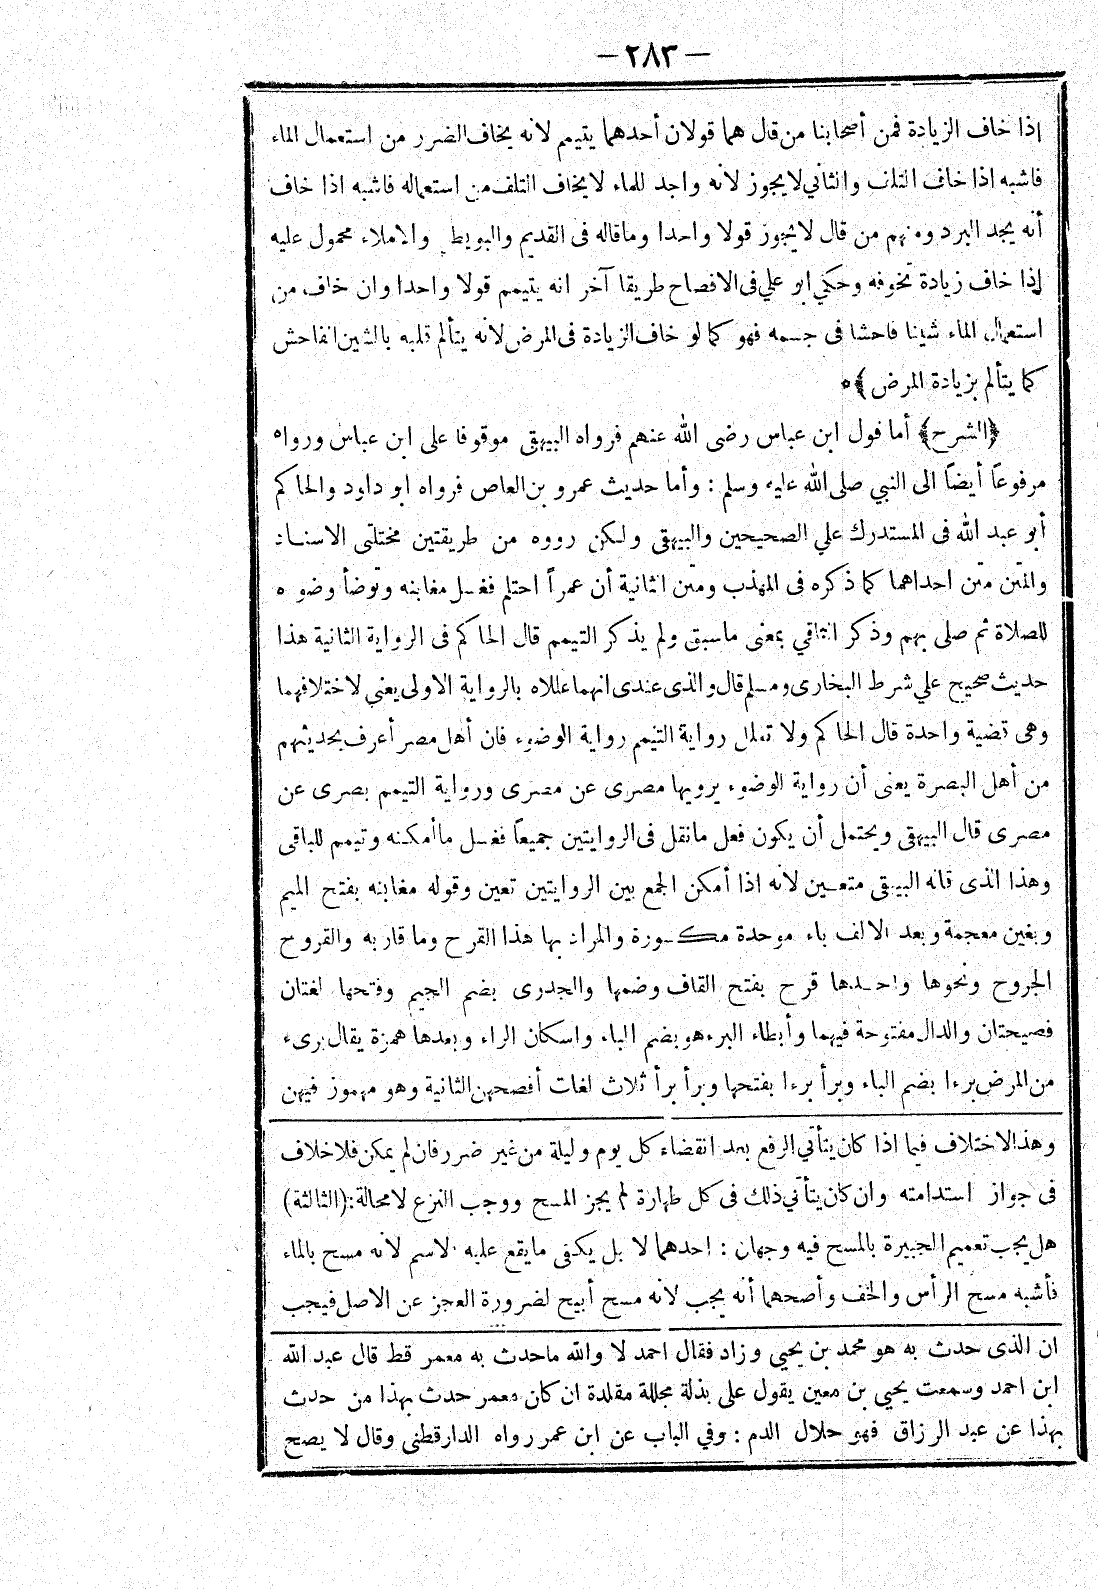 — ٢٨٣ —
إذا خاف الزيادة فمن أصحابنا من قال هما قولان أحدهما يتيمم لانه يخاف الضرر من استعمال الماء
فاشبه اذا خاف التلف والثاني لا يجوز لانه واجد للماء لا يخاف التلف من استعماله فاشبه اذا خاف
أنه يجد البرد ومنهم من قال لا يجوز قولا واحدا وما قاله فى القديم والبويطي والاملاء محمول عليه
إذا خاف زيادة مخوفه وحكي ابو علي فى الافصاح طريقا آخر انه يتيمم قولا واحدا وان خاف من
استعمال الماء شينا فاحشا فى جسمه فهو كما لو خاف الزيادة فى المرض لانه يتألم قلبه بالشين الفاحش
كما يتألم بزيادة المرض ﴾ ٥
﴿الشرح﴾ أما قول ابن عباس رضى الله عنهم فرواه البيهقى موقوفا على ابن عباس ورواه
مرفوعاً أيضاً الى النبي صلى الله عليه وسلم : وأما حديث عمرو بن العاص فرواه ابو داود والحاكم
أبو عبد الله فى المستدرك علي الصحيحين والبيهقى ولكن رووه من طريقتين مختلتى الاسناد
والمتن متن احداهما كما ذكره فى المهذب ومتن الثانية أن عمراً احتلم فغسل مغابنه وتوضأ وضوءه
للصلاة ثم صلى بهم وذكر الباقي بمعنى ما سبق ولم يذكر التيمم قال الحاكم فى الرواية الثانية هذا
حديث صحيح علي شرط البخارى ومسلم قال والذى عندى انهما عللاه بالرواية الاولى يعني لاختلافهما
وهى قضية واحدة قال الحاكم ولا تعلل رواية التيمم رواية الوضوء فان أهل مصر أعرف بحديثهم
من أهل البصرة يعنى أن رواية الوضوء يرويها مصرى عن مصرى ورواية التيمم بصرى عن
مصرى قال البيهقى ويحتمل أن يكون فعل ما نقل فى الروايتين جميعاً فغسل ما أمكنه وتيمم للباقى
وهذا الذى قاله البيهقى متعين لانه اذا أمكن الجمع بين الروايتين تعين وقوله مغابنه بفتح الميم
وبغين معجمة وبعد الالف باء موحدة مكسورة والمراد بها هذا القرح وما قاربه والقروح
الجروح ونحوها واحدها قرح بفتح القاف وضمها والجدرى بضم الجيم وفتحها لغتان
فصيحتان والدال مفتوحة فيهما وأبطاء البرء هو بضم الباء واسكان الراء وبعدها همزة يقال برىء
من المرض برءا بضم الباء وبرأ برءا بفتحها وبرأ برأ ثلاث لغات أفصحهن الثانية وهو مهموز فيهن
وهذا الاختلاف فيما اذا كان يتأتي الرفع بعد انقضاء كل يوم وليلة من غير ضرر فان لم يمكن فلا خلاف
فى جواز استدامته وان كان يتأتي ذلك فى كل طهارة لم يجز المسح ووجب النزع لا محالة : (الثالثة)
هل يجب تعميم الجبيرة بالمسح فيه وجهان : احدهما لا بل يكفى ما يقع عليه الاسم لانه مسح بالماء
فأشبه مسح الرأس والخف وأصحهما أنه يجب لانه مسح أبيح لضرورة العجز عن الاصل فيجب
ان الذى حدث به هو محمد بن يحيي وزاد فقال احمد لا والله ما حدث به معمر قط قال عبد الله
ابن احمد وسمعت يحيي بن معين يقول على بذلة مجللة مقلدة ان كان معمر حدث بهذا من حدث
بهذا عن عبد الرزاق فهو حلال الدم : وفي الباب عن ابن عمر رواه الدارقطنى وقال لا يصح